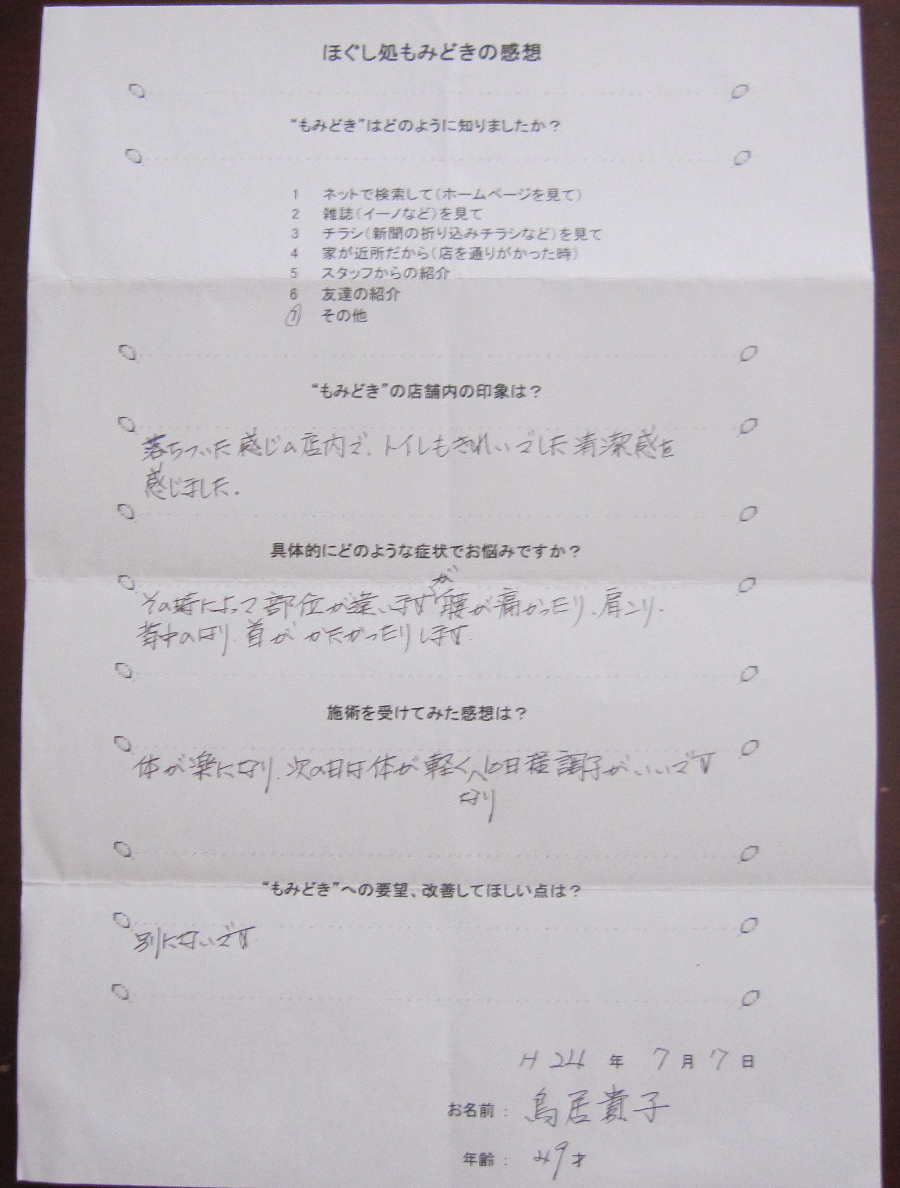 ほぐし処もみどきの感想
“もみどき”はどのように知りましたか？
1 ネットで検索して（ホームページを見て）
2 雑誌（イーノなど）を見て
3 チラシ（新聞の折り込みチラシなど）を見て
4 家が近所だから（店を通りがかった時）
5 スタッフからの紹介
6 友達の紹介
7 その他
“もみどき”の店舗内の印象は？
落ちついた感じの店内で、トイレもきれいでした清潔感を
感じました。
具体的にどのような症状でお悩みですか？
その時によって部位が違いますが腰が痛かったり、肩こり、
背中のはり、首がかたかったりします
施術を受けてみた感想は？
体が楽になり、次の日は体が軽くなり日程調子がいいです
“もみどき”への要望、改善してほしい点は？
別にないです
H24年 7月 7日
お名前： 鳥居貴子
年齢： 才